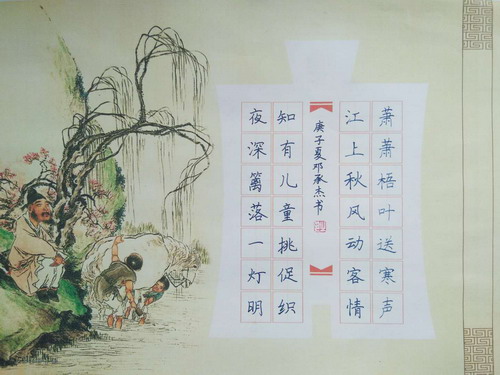 萧萧梧叶送寒声
江上秋风动客情
庚子夏邓承杰书
知有儿童挑促织
夜深篱落一灯明